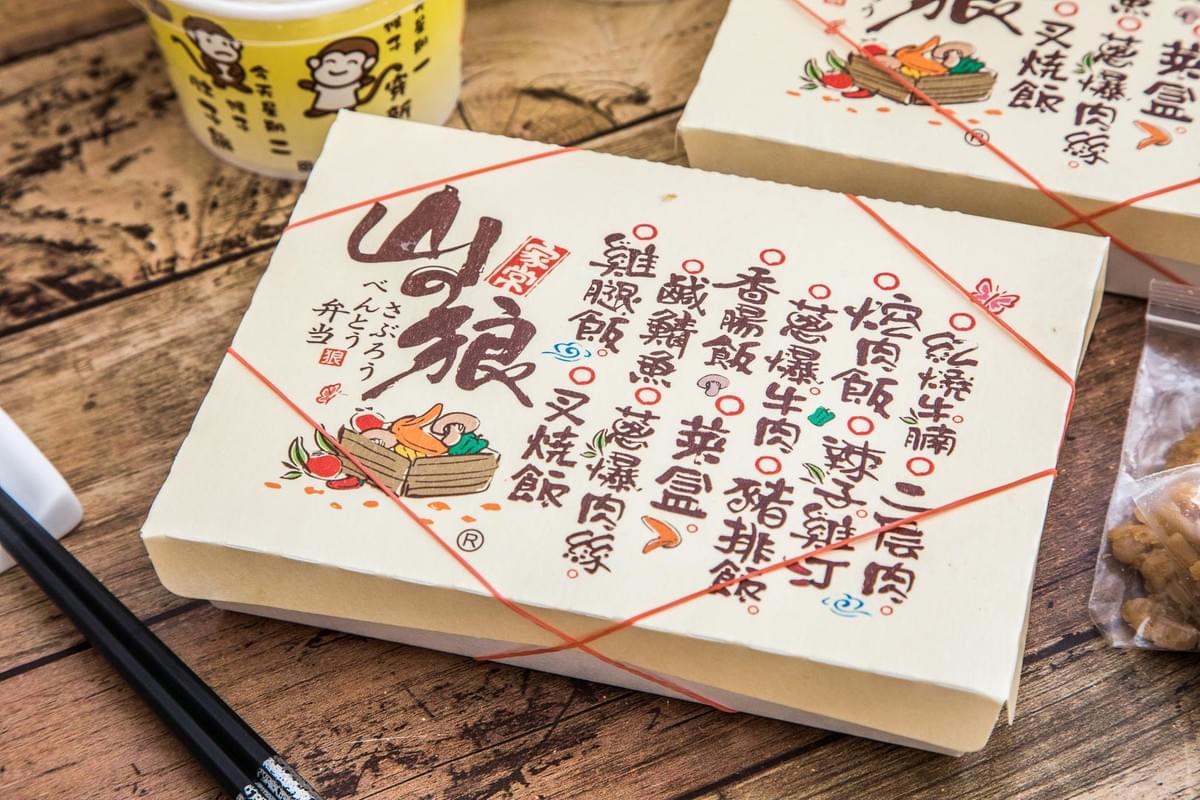 今天星期二
山の狼
家常
さぶろう
べんとう
弁当
狼
紅燒牛腩
二层肉
焢肉飯
辣子雞汀
蔥爆牛肉
豬排飯
香腸飯
菜盒
鹹鯖魚
蔥爆肉絲
雞腿飯
叉燒飯
®
狼
う
菜盒
魚
蔥爆肉絲
叉燒飯
®